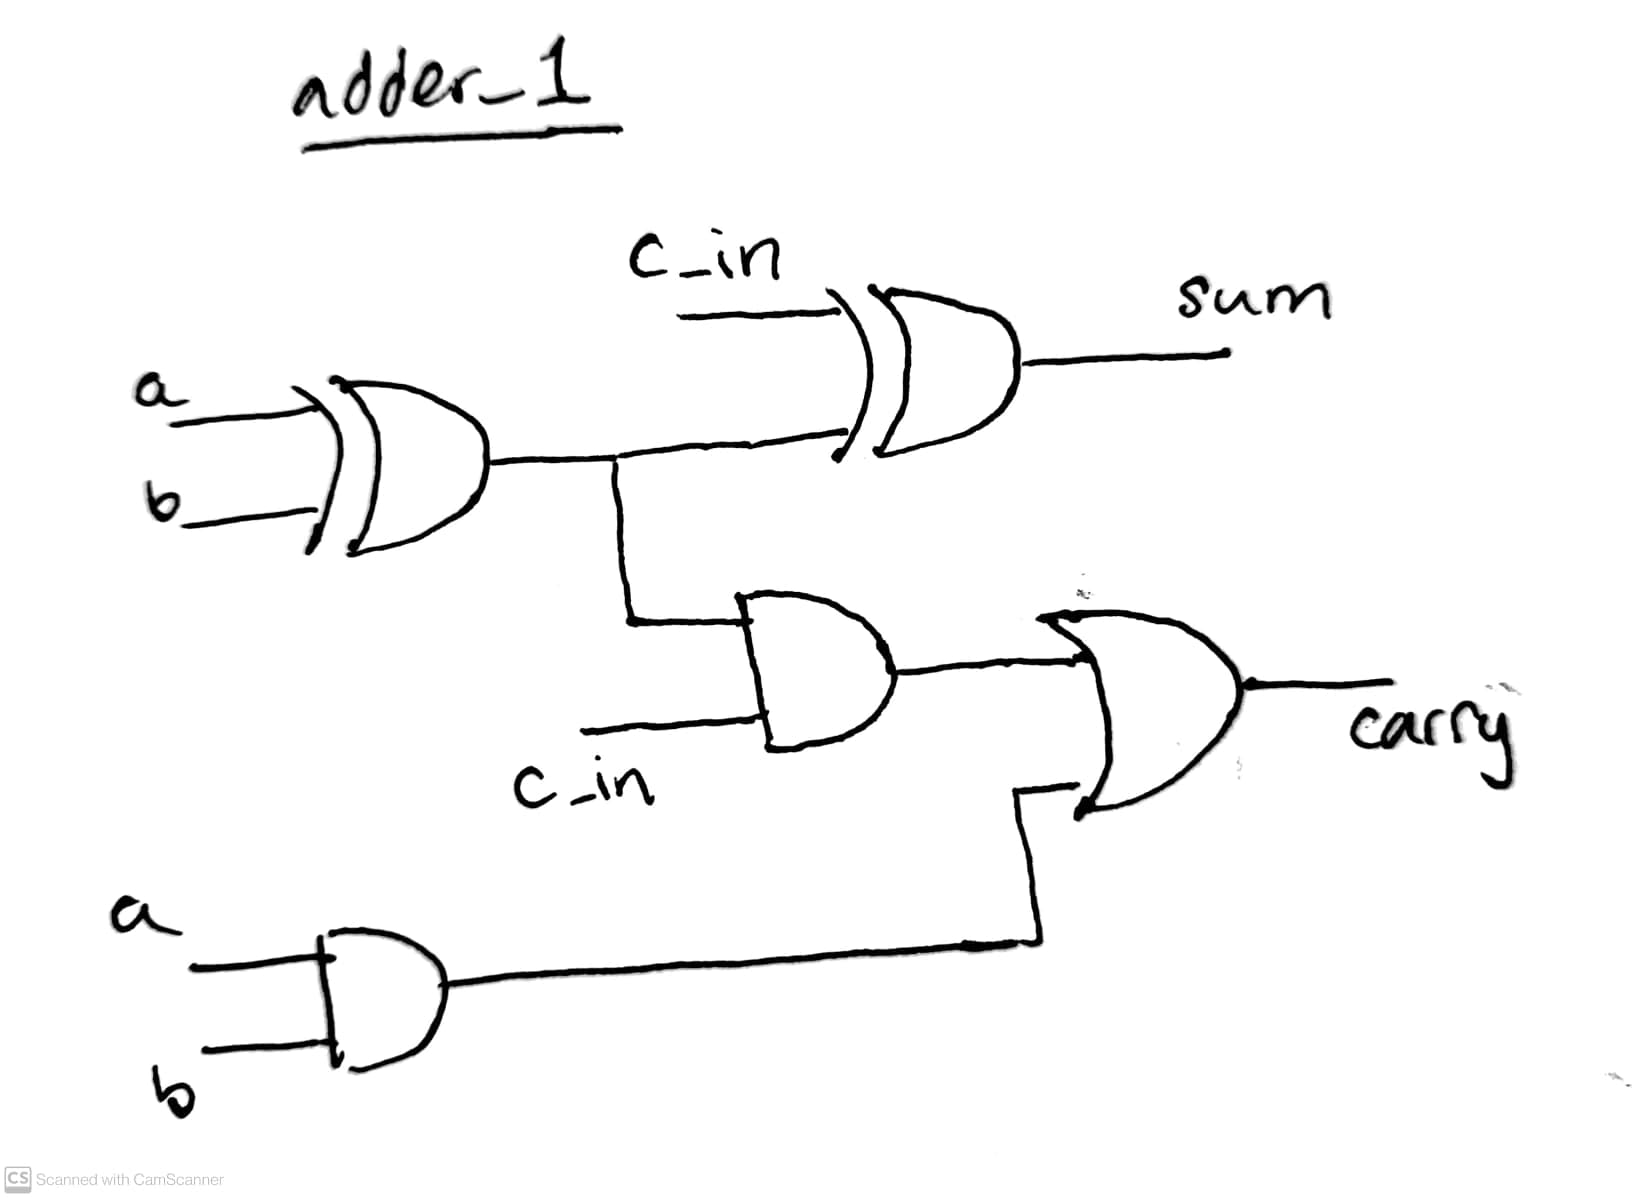 adder_1
c_in
sum
a
b
c_in
carry
a
b
CS Scanned with CamScanner